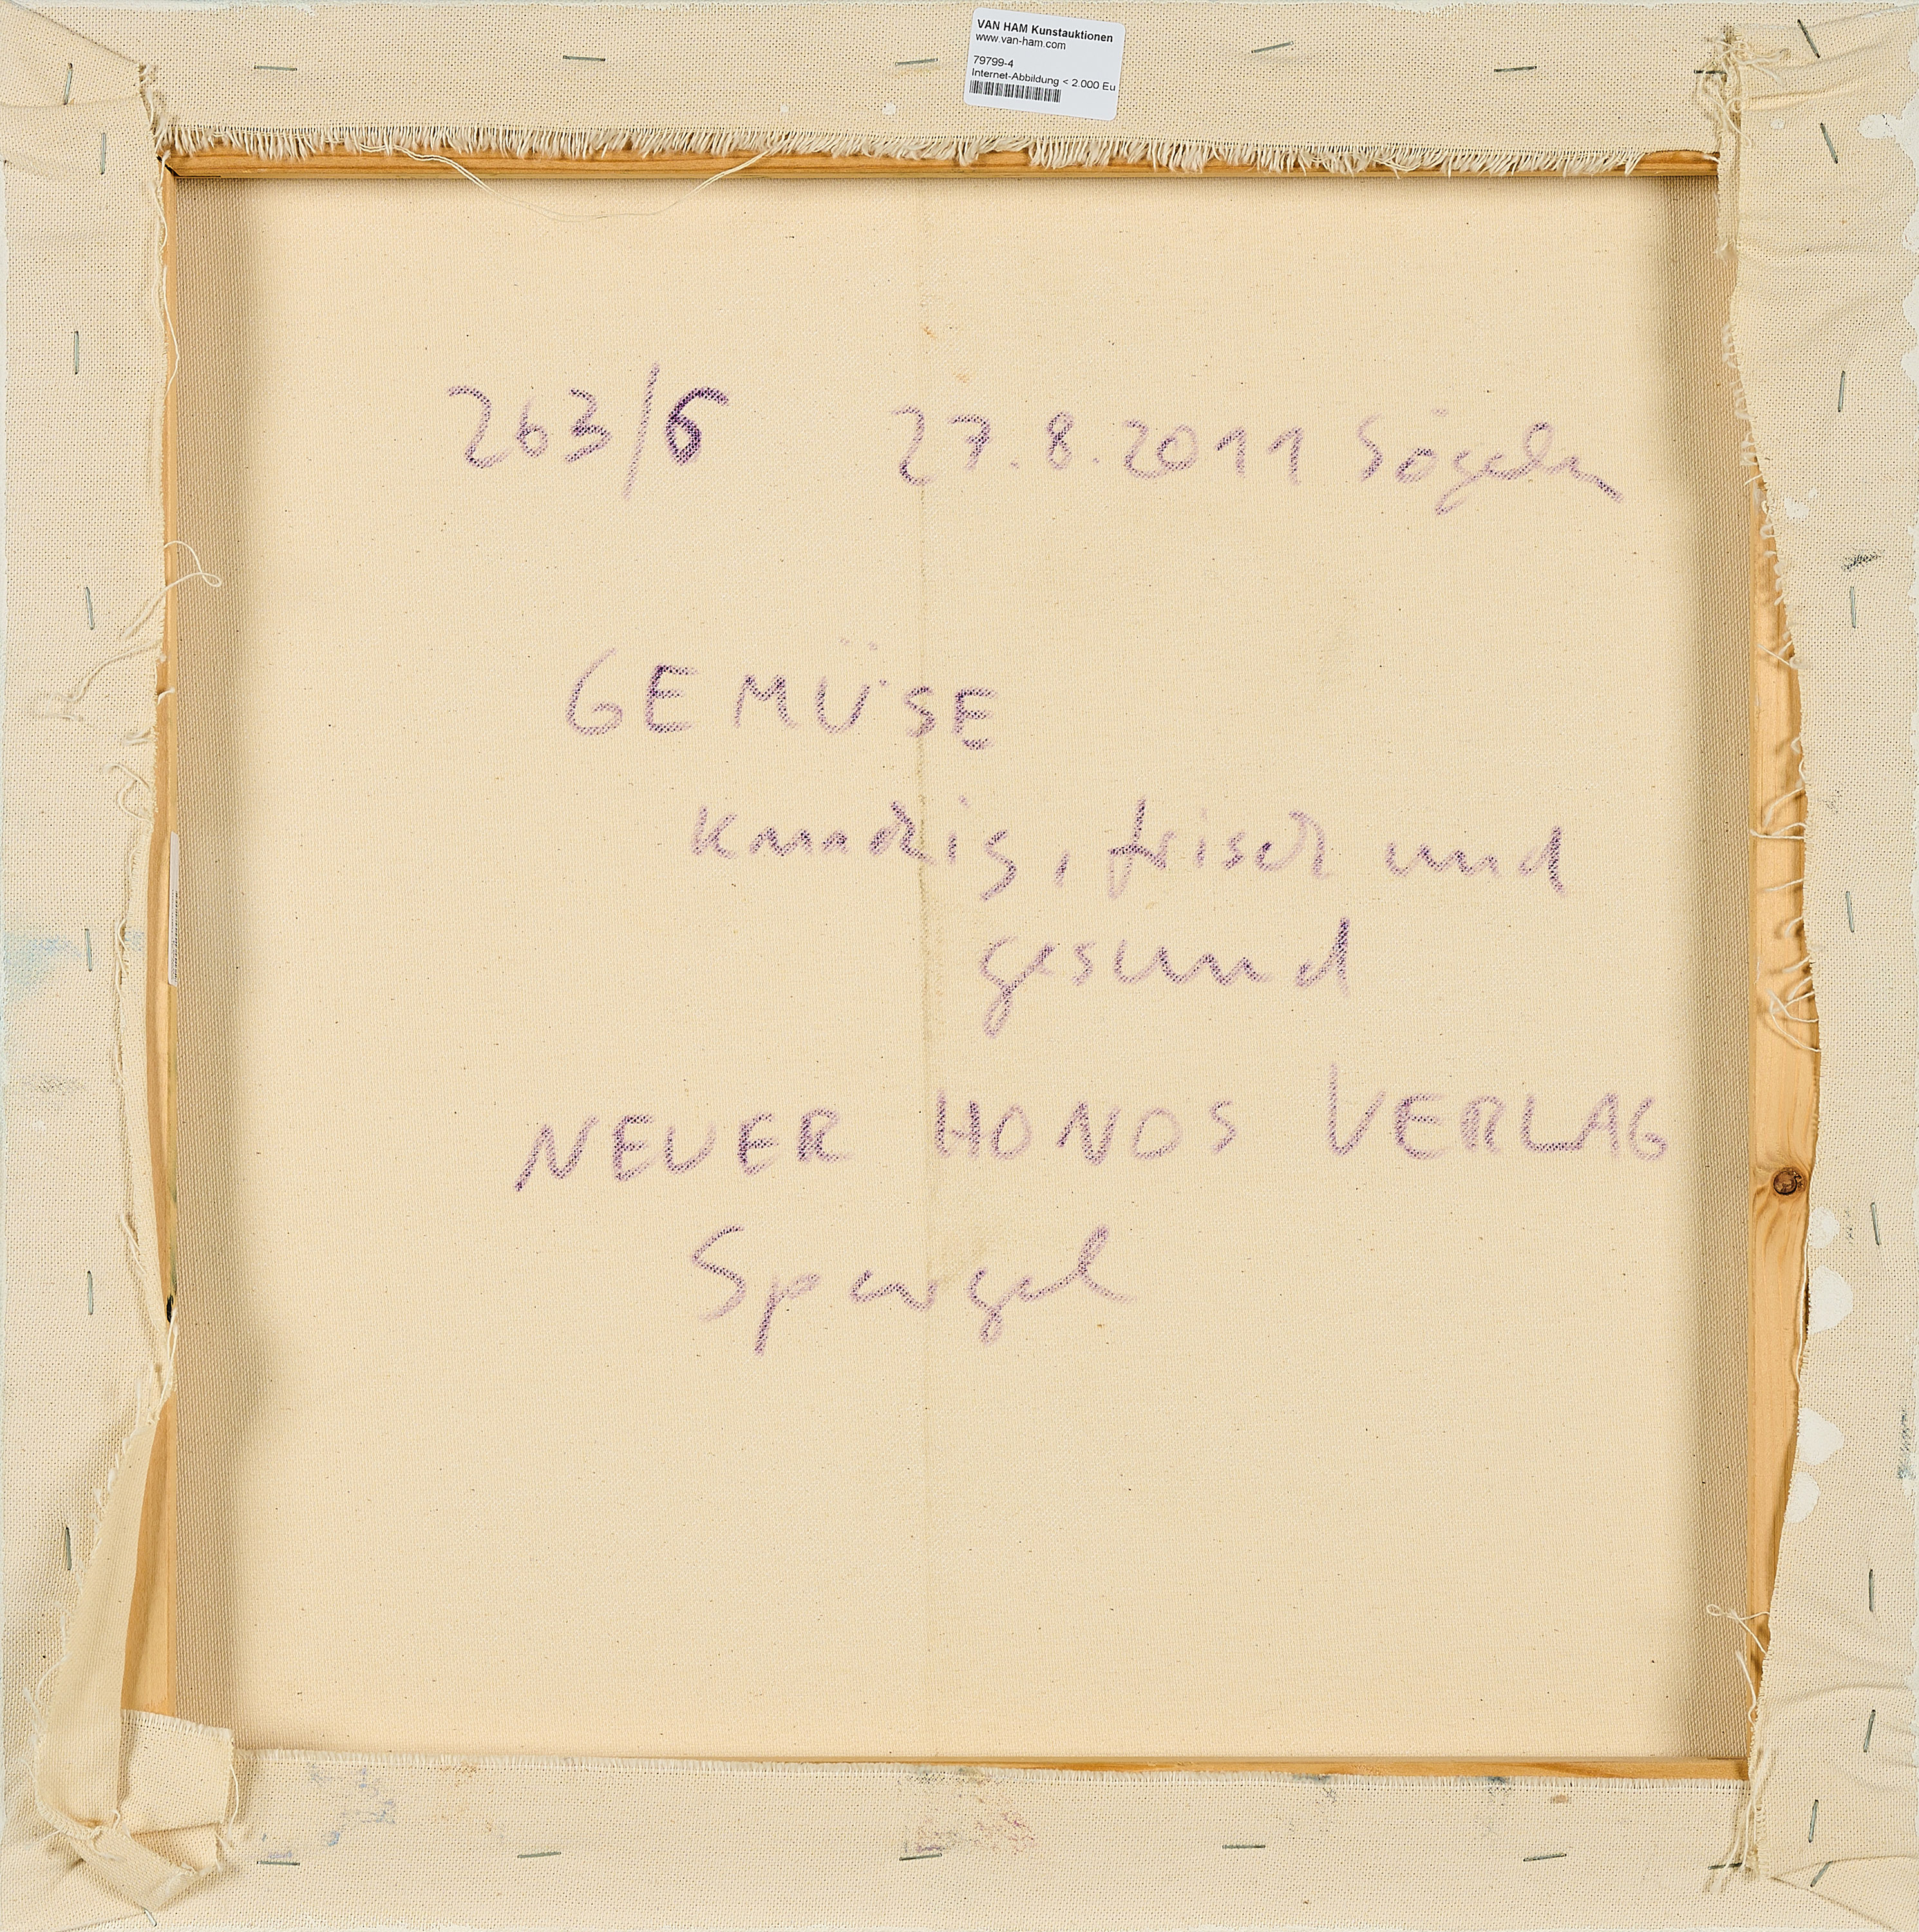 VAN HAM Kunstauktionen
www.van-ham.com
79799-4
Internet-Abbildung < 2.000 Eu
263/6 27.8.2011 Sögeln
GEMÜSE
knackig, frisch und
gesund
NEUER HONOS VERLAG
Spargel